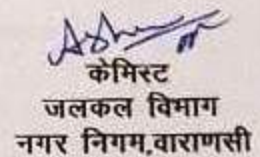 केमिस्ट
जलकल विभाग
नगर निगम,वाराणसी